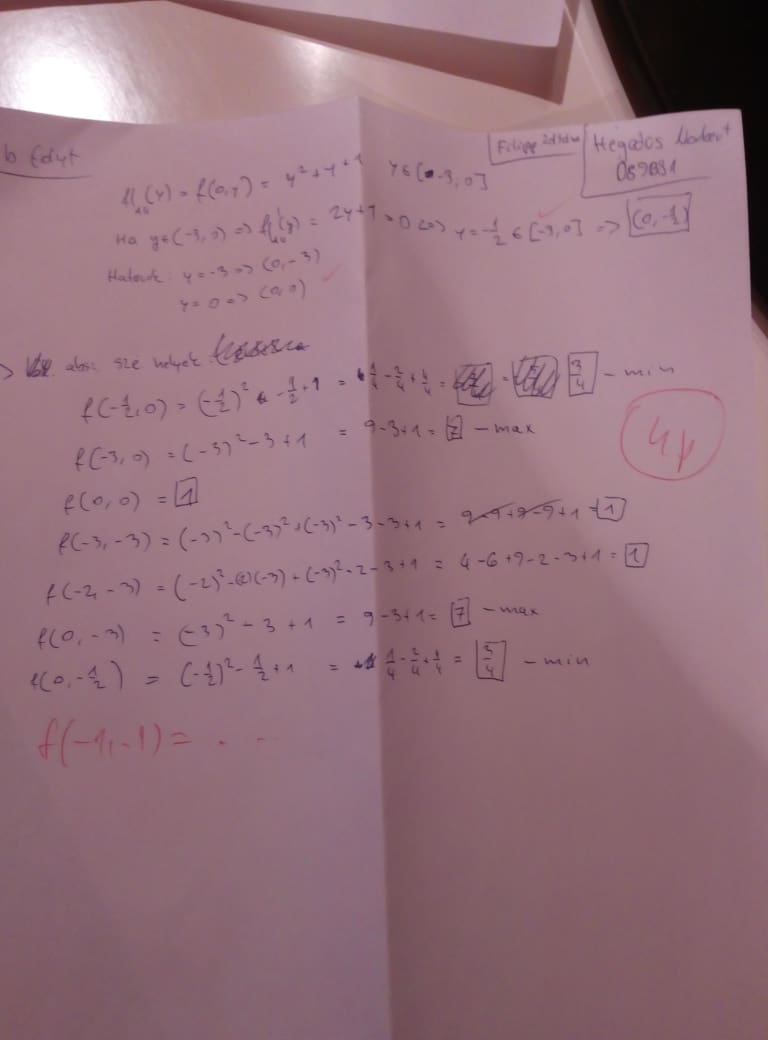 b folyt
Filipp Zoltán
Hegedűs Norbert
f|(y) = f(0,y) = y²+y+1 y∈[-3,0]
Ha y∈(-3,0) => f|'(y) = 2y+1 = 0 <=> y=-1/2 ∈ [-3,0] => (0,-1/2)
Határok: y=-3 => (0,-3)
y=0 => (0,0)
absz. sze helyek
f(-1/2,0) = (-1/2)² -1/2+1 = 1/4 - 2/4 + 4/4 = 3/4 - min
f(-3,0) = (-3)²-3+1 = 9-3+1 = 7 - max
4p
f(0,0) = 1
f(-3,-3) = (-3)²-(-3)²+(-3)²-3-3+1 = 9-9+9-9+1 = 1
f(-2,-3) = (-2)²-(2)(-3)+(-3)²-2-3+1 = 4-6+9-2-3+1 = 1
f(0,-3) = (-3)²-3+1 = 9-3+1 = 7 - max
f(0,-1/2) = (-1/2)²-1/2+1 = 1/4 - 2/4 + 4/4 = 3/4 - min
f(-1,-1) = . . .